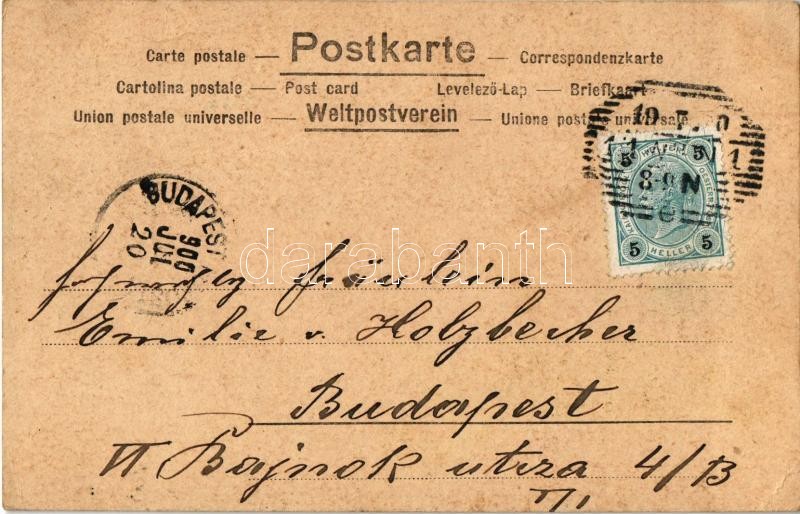 Carte postale — Postkarte — Correspondenzkarte
Cartolina postale — Post card Levelező-Lap — Briefkaart
Union postale universelle — Weltpostverein — Unione postale universale
19 7
8-9 N
5 5
5 HELLER 5
BUDAPEST
900
JUL
20
darabanth
fräulein
Emilie v. Holzbecher
Budapest
VI Bajnok utcza 4/B